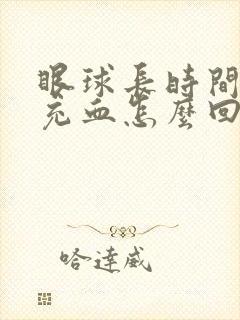 眼球長時間
充血怎麼回
哈達威